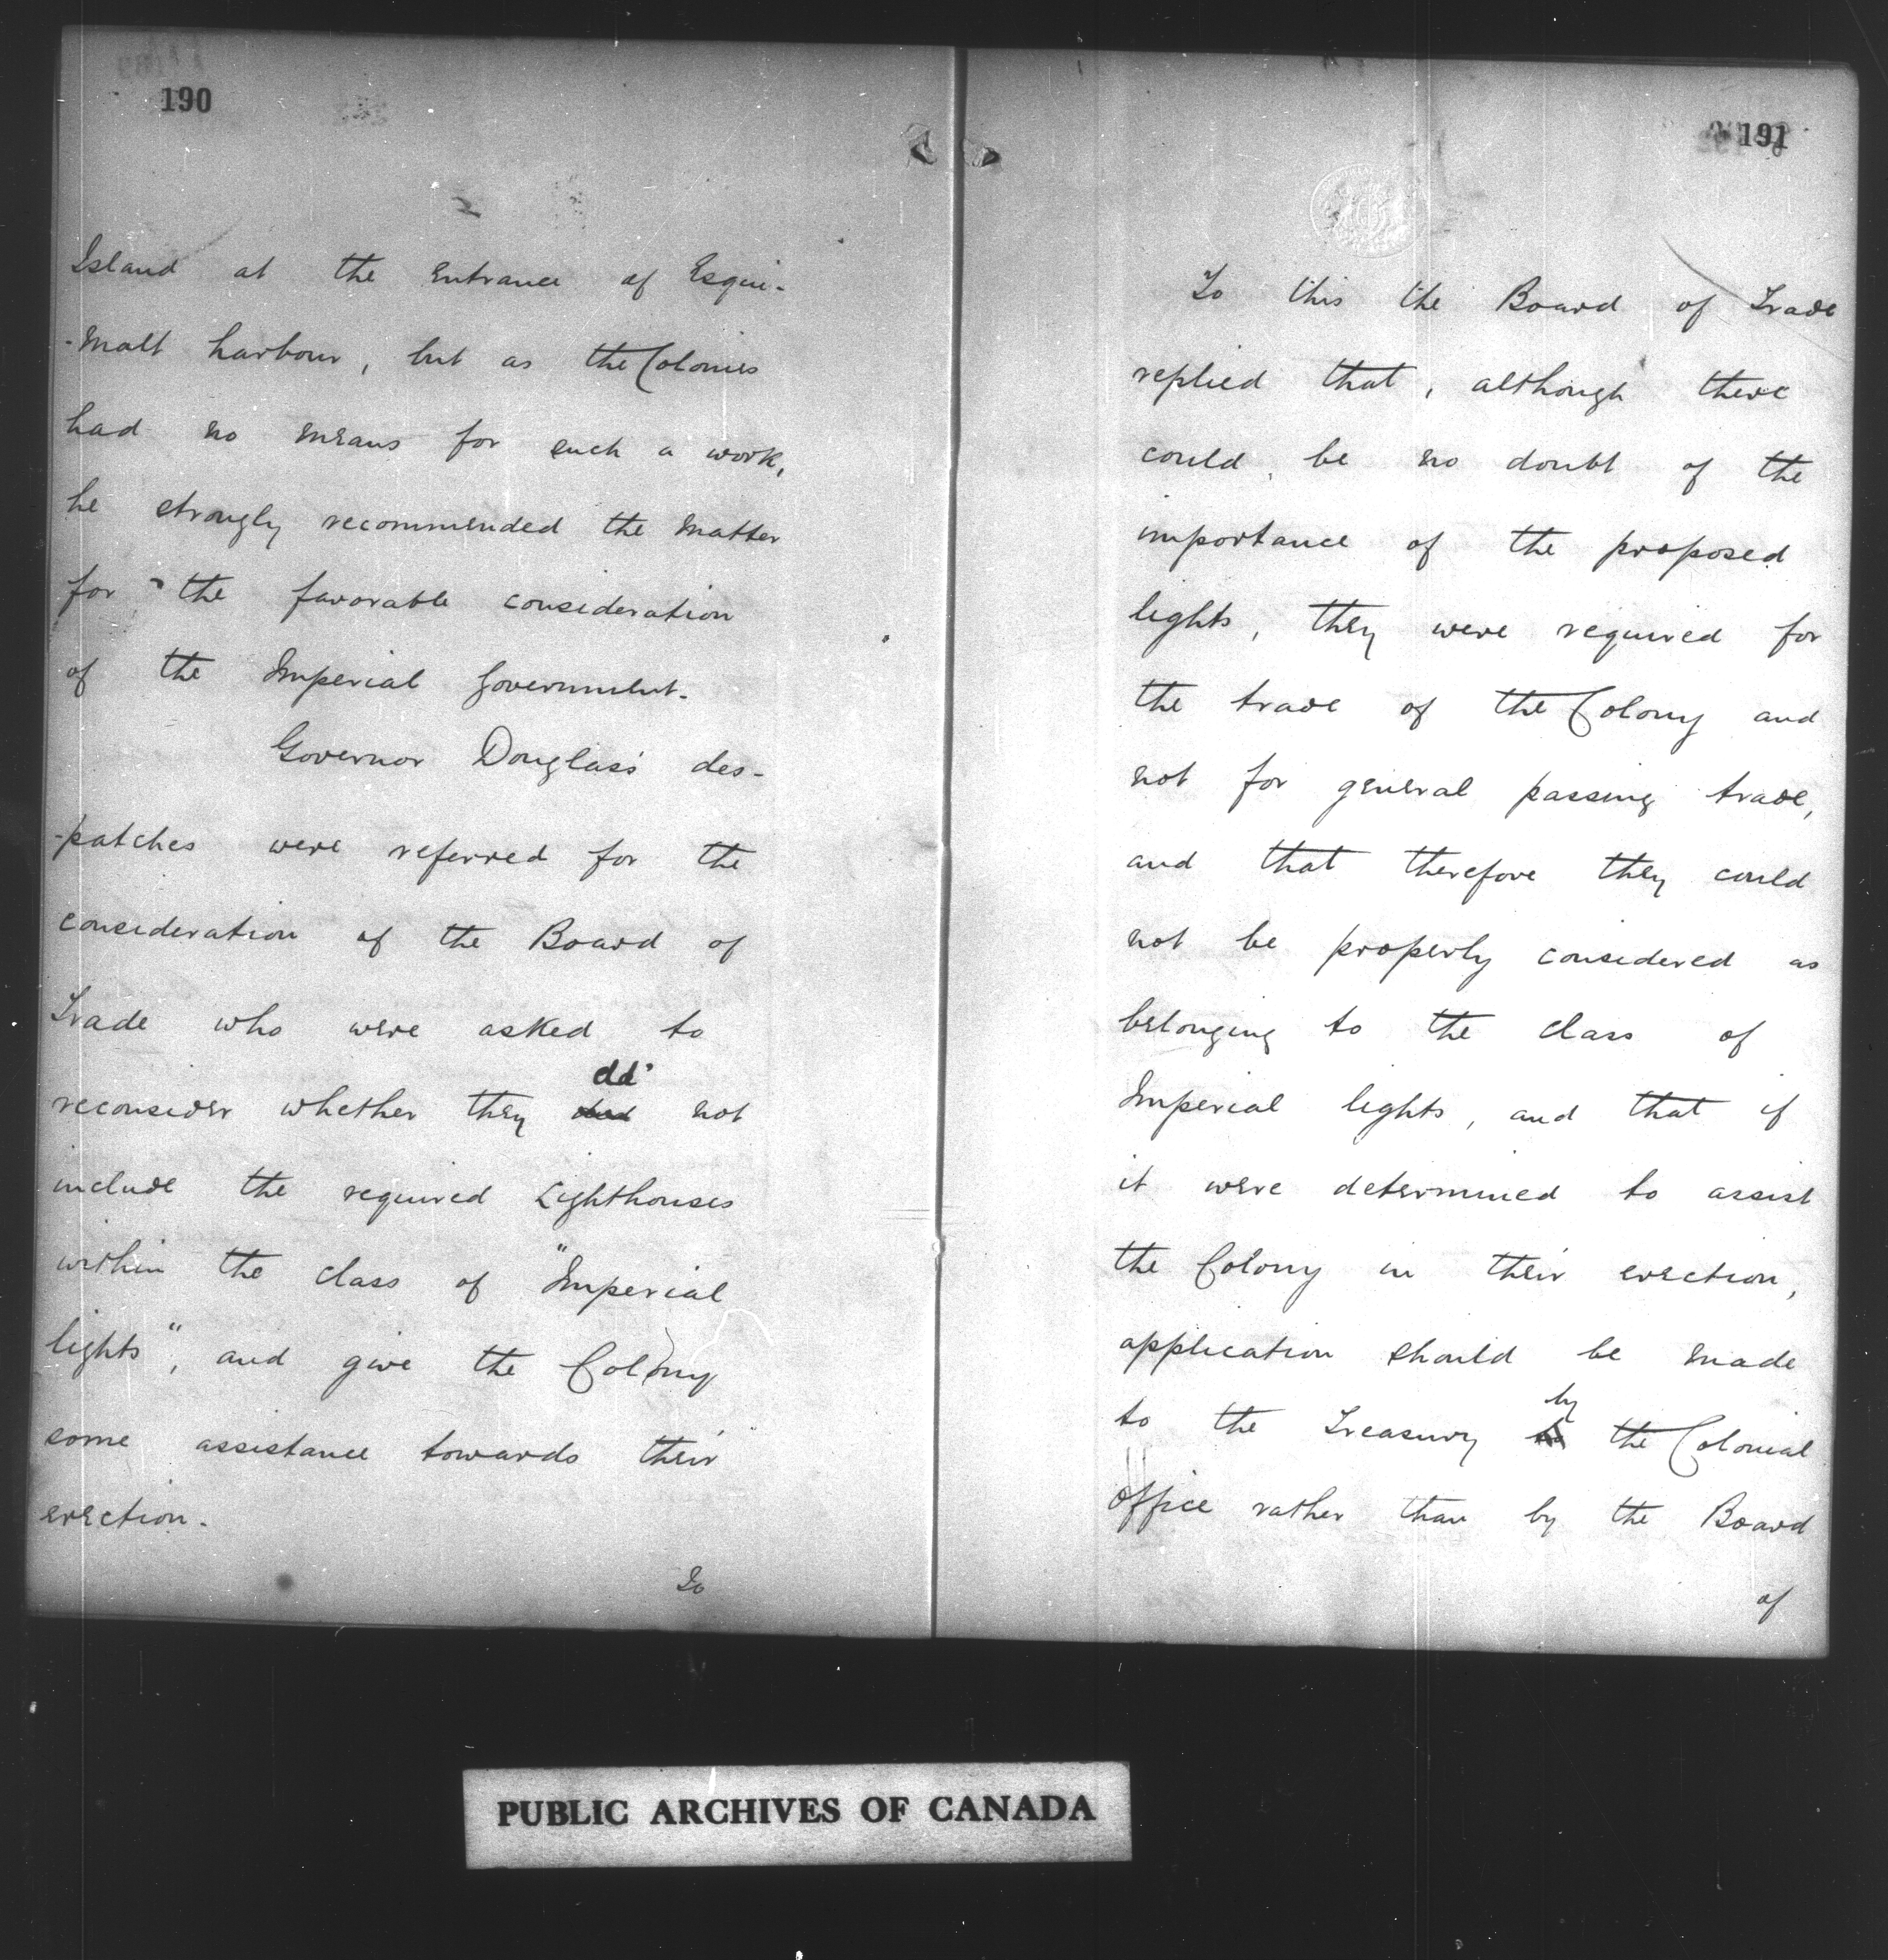 190
Island at the entrance of Esqui-
-malt harbour, but as the Colonies
had no means for such a work,
he strongly recommended the matter
for the favorable consideration
of the Imperial Government.
Governor Douglas's des-
-patches were referred for the
consideration of the Board of
Trade who were asked to
cld
reconsider whether they did not
include the required Lighthouses
within the class of "Imperial
lights", and give the Colony
some assistance towards their
erection.
To
191
To this the Board of Trade
replied that, although there
could be no doubt of the
importance of the proposed
lights, they were required for
the trade of the Colony and
not for general passing trade,
and that therefore they could
not be properly considered as
belonging to the class of
Imperial lights, and that if
it were determined to assist
the Colony in their erection,
application should be made
by
to the Treasury the Colonial
Office rather than by the Board
of
PUBLIC ARCHIVES OF CANADA